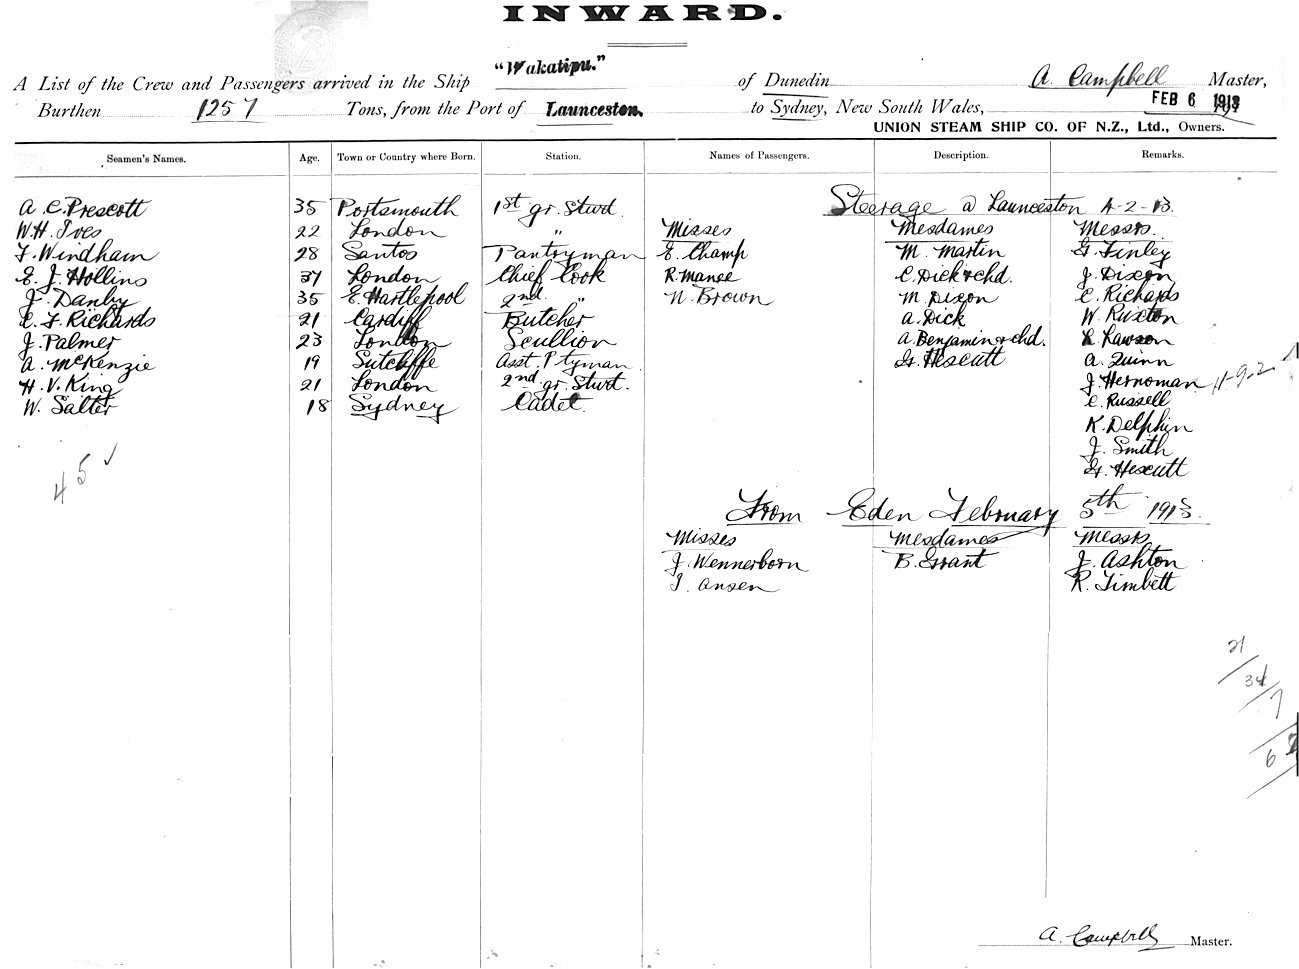 INWARD.
A List of the Crew and Passengers arrived in the Ship "Wakatipu." of Dunedin A. Campbell Master,
Burthen 1257 Tons, from the Port of Launceston. to Sydney, New South Wales, FEB 6 1913
UNION STEAM SHIP CO. OF N.Z., Ltd., Owners.
Seamen's Names. Age. Town or Country where Born. Station. Names of Passengers. Description. Remarks.
Steerage @ Launceston 4-2-13.
A. C. Prescott 35 Portsmouth 1st gr. Stwd.
W. H. Ives 22 London " Misses Mesdames Messrs.
F. Windham 28 Santos Pantryman E. Champ M. Martin G. Finley
E. J. Hollins 37 London Chief Cook R. Manee C. Dick & chd. J. Dixon
J. Danby 35 E. Hartlepool 2nd. " N. Brown M. Dixon C. Richards
C. F. Richards 21 Cardiff Butcher A. Dick W. Ruxton
J. Palmer 23 London Scullion A. Benjamin & chd. L. Lawson
A. McKenzie 19 Sutcliffe Asst. P'tyman G. Hescutt A. Quinn
H. V. King 21 London 2nd gr. Stwd. J. Hernoman 11-9-2
W. Salter 18 Sydney Cadet. C. Russell
K. Delphin
J. Smith
G. Hescutt
45 ✓
From Eden February 5th 1913.
Misses Mesdames Messrs
J. Wennerborn B. Grant J. Ashton
I. Ansen R. Timbett
21
34
7
6
A. Campbell Master.